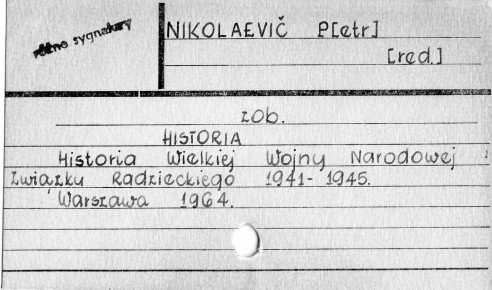 różne sygnatury
NIKOLAEVIČ P[etr]
[red.]
zob.
HISTORIA
Historia Wielkiej Wojny Narodowej
Związku Radzieckiego 1941-1945.
Warszawa 1964.